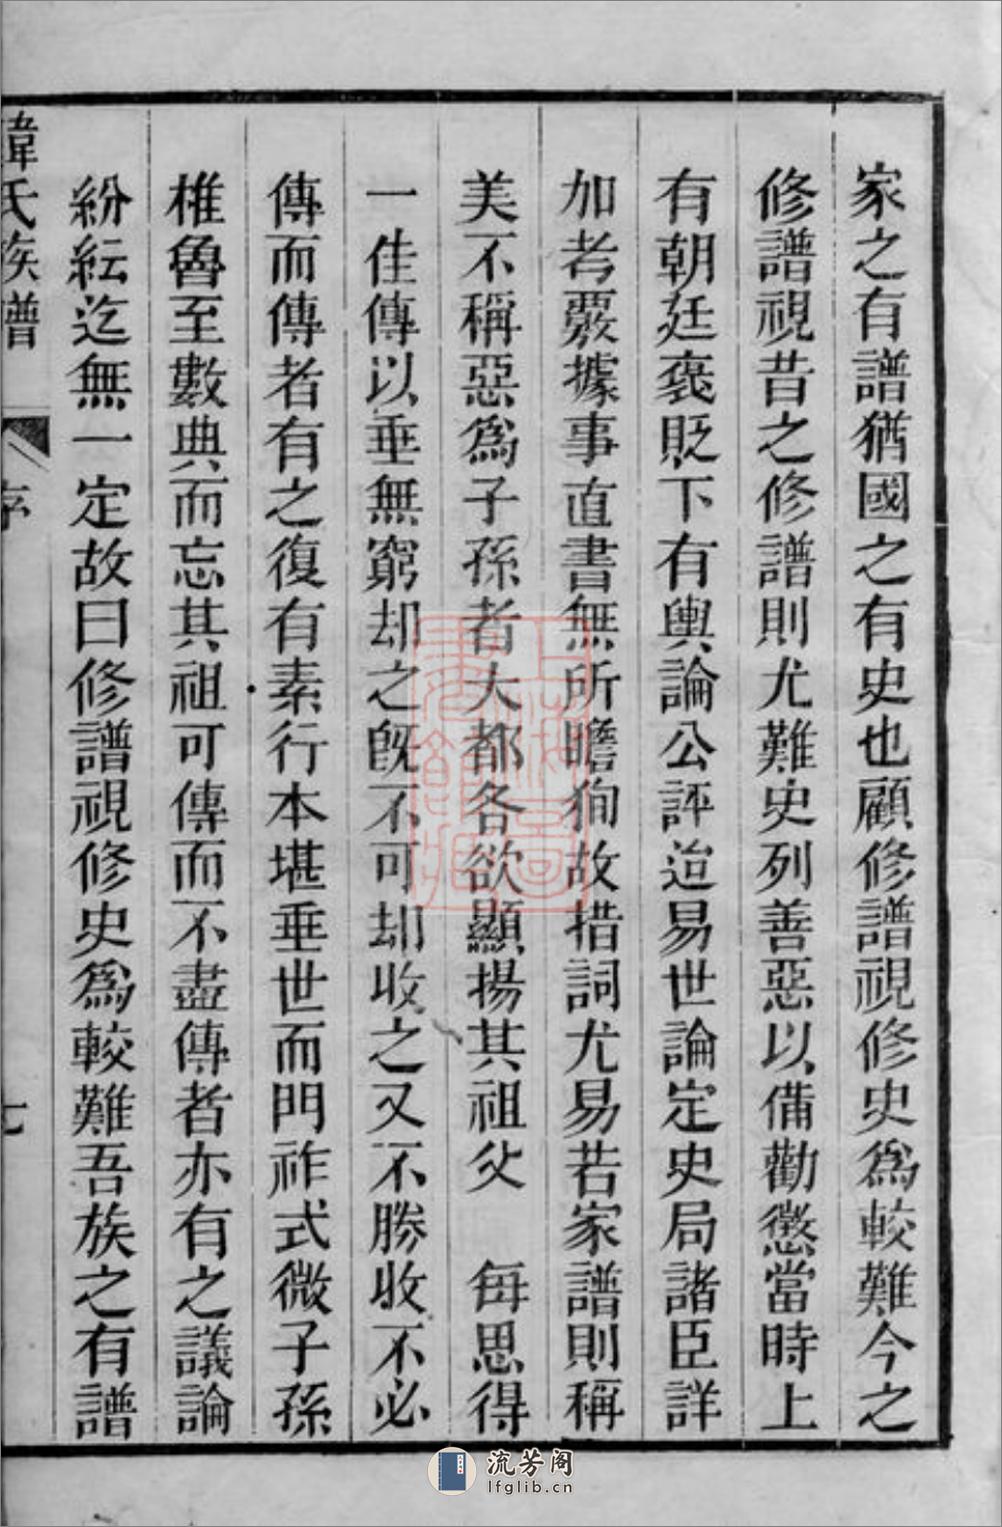 家之有譜猶國之有史也顧修譜視修史爲較難今之
修譜視昔之修譜則尤難史列善惡以備勸懲當時上
有朝廷褒貶下有輿論公評迨易世論定史局諸臣詳
加考覈據事直書無所瞻狥故措詞尤易若家譜則稱
美不稱惡爲子孫者大都各欲顯揚其祖父 每思得
一佳傳以垂無窮却之旣不可却收之又不勝收不必
傳而傳者有之復有素行本堪垂世而門祚式微子孫
椎魯至數典而忘其祖可傳而不盡傳者亦有之議論
紛紜迄無一定故曰修譜視修史爲較難吾族之有譜
韋氏族譜 序 七
上海圖書館藏
流芳阁
lfglib.cn